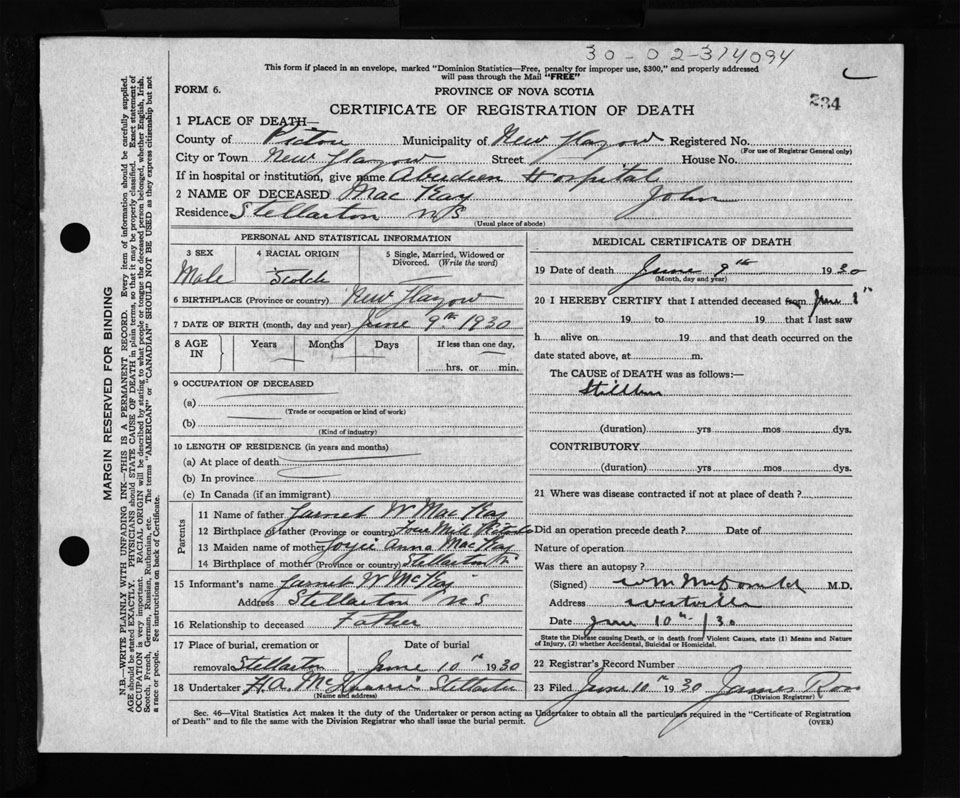 30-02-314094
This form if placed in an envelope, marked "Dominion Statistics—Free, penalty for improper use, $300," and properly addressed
will pass through the Mail "FREE"
FORM 6.
PROVINCE OF NOVA SCOTIA
234
CERTIFICATE OF REGISTRATION OF DEATH
1 PLACE OF DEATH—
County of Pictou Municipality of New Glasgow Registered No.
(For use of Registrar General only)
City or Town New Glasgow Street House No.
If in hospital or institution, give name Aberdeen Hospital
2 NAME OF DECEASED MacKay John
Residence Stellarton NS
(Usual place of abode)
PERSONAL AND STATISTICAL INFORMATION
3 SEX 4 RACIAL ORIGIN 5 Single, Married, Widowed or
Divorced. (Write the word)
Male Scotch
6 BIRTHPLACE (Province or country) New Glasgow
7 DATE OF BIRTH (month, day and year) June 9th 1930
8 AGE IN Years Months Days If less than one day,
hrs. or min.
9 OCCUPATION OF DECEASED
(a)
(Trade or occupation or kind of work)
(b)
(Kind of industry)
10 LENGTH OF RESIDENCE (in years and months)
(a) At place of death
(b) In province
(c) In Canada (if an immigrant)
Parents
11 Name of father Garnet W MacKay
12 Birthplace of father (Province or country) Four Mile
13 Maiden name of mother Anna MacKay
14 Birthplace of mother (Province or country) Stellarton
15 Informant's name Garnet W McKay
Address Stellarton NS
16 Relationship to deceased Father
17 Place of burial, cremation or Date of burial
removal Stellarton June 10th 1930
18 Undertaker H.A. Stellarton
(Name and address)
MEDICAL CERTIFICATE OF DEATH
19 Date of death June 9th 1930
(Month, day and year)
20 I HEREBY CERTIFY that I attended deceased from June
19 to 19 that I last saw
h alive on 19 and that death occurred on the
date stated above, at m.
The CAUSE of DEATH was as follows:—
Stillborn
(duration) yrs mos dys.
CONTRIBUTORY
(duration) yrs mos dys.
21 Where was disease contracted if not at place of death?
Did an operation precede death? Date of
Nature of operation
Was there an autopsy?
(Signed) M.D.
Address Westville
Date June 10th /30
State the Disease causing Death, or in death from Violent Causes, state (1) Means and Nature
of Injury, (2) whether Accidental, Suicidal or Homicidal.
22 Registrar's Record Number
23 Filed June 10th 1930 James Ross
(Division Registrar)
Sec. 46—Vital Statistics Act makes it the duty of the Undertaker or person acting as Undertaker to obtain all the particulars required in the "Certificate of Registration
of Death" and to file the same with the Division Registrar who shall issue the burial permit.
(OVER)
MARGIN RESERVED FOR BINDING
N.B.—WRITE PLAINLY WITH UNFADING INK—THIS IS A PERMANENT RECORD. Every item of information should be carefully supplied.
AGE should be stated EXACTLY. PHYSICIANS should STATE CAUSE OF DEATH in plain terms, so that it may be properly classified. Exact statement of
OCCUPATION is very important. RACIAL ORIGIN will be described by stating to what people or tongue the deceased person belonged, whether English, Irish,
Scotch, French, German, Russian, Ruthenian, etc. The terms "AMERICAN" or "CANADIAN" SHOULD NOT BE USED as they express citizenship but not
a race or people. See instructions on back of Certificate.